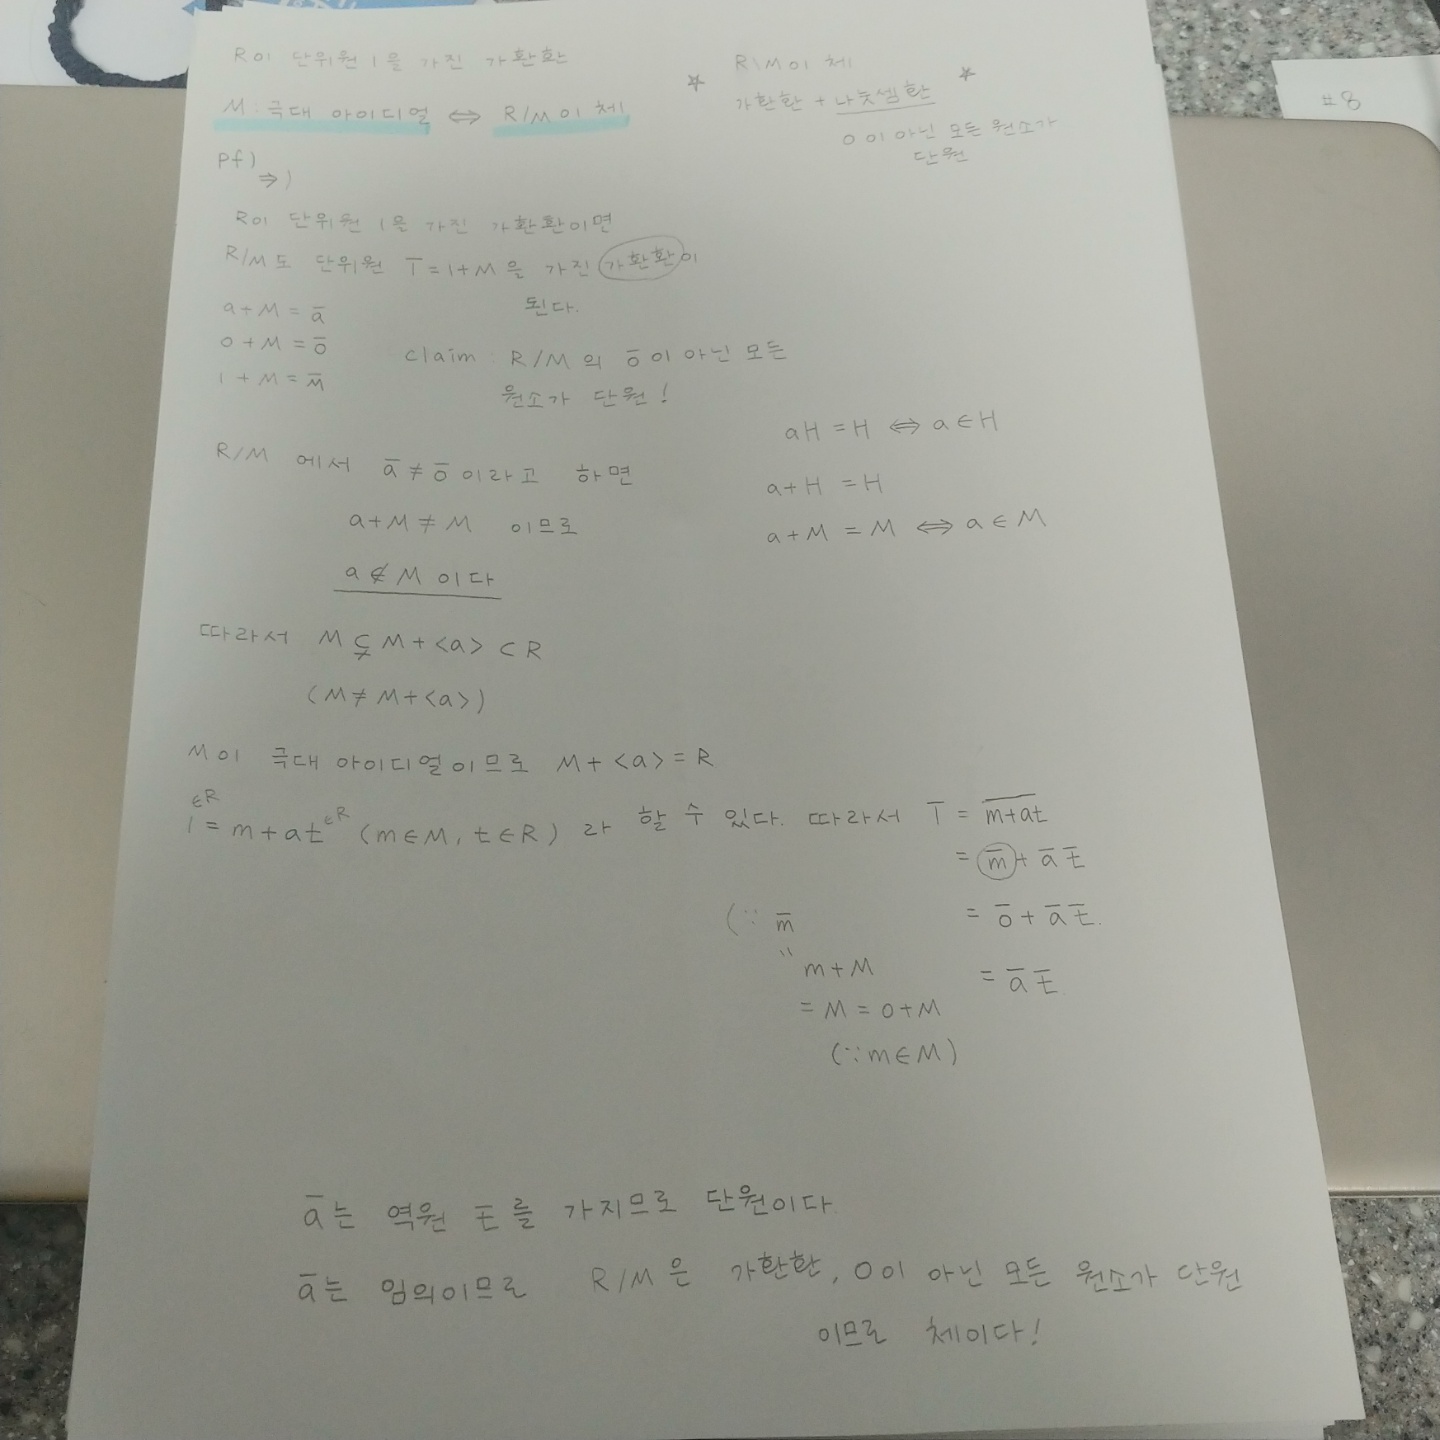 R이 단위원 1을 가진 가환환
M : 극대 아이디얼 ⇔ R/M이 체
☆ R\M이 체 ☆
가환환 + 나눗셈환
0이 아닌 모든 원소가
단원
#8
pf)
⇒)
R이 단위원 1을 가진 가환환이면
R/M도 단위원 1̅ = 1+M을 가진 가환환이
된다.
a+M = a̅
0+M = 0̅
1+M = M̅
claim : R/M의 0̅이 아닌 모든
원소가 단원!
R/M 에서 a̅ ≠ 0̅ 이라고 하면
a+M ≠ M 이므로
a ∉ M 이다
aH = H ⇔ a ∈ H
a+H = H
a+M = M ⇔ a ∈ M
따라서 M ⊊ M+<a> ⊂ R
(M ≠ M+<a>)
M이 극대 아이디얼이므로 M+<a> = R
∈R ∈R
1 = m+at (m∈M, t∈R) 라 할 수 있다. 따라서 1̅ = m+at̅
= m̅ + a̅ t̅
= 0̅ + a̅ t̅.
= a̅ t̅
(∵ m̅
"
m+M
= M = 0+M
(∵ m∈M)
a̅는 역원 t̅를 가지므로 단원이다.
a̅는 임의이므로 R/M은 가환환, 0이 아닌 모든 원소가 단원
이므로 체이다!